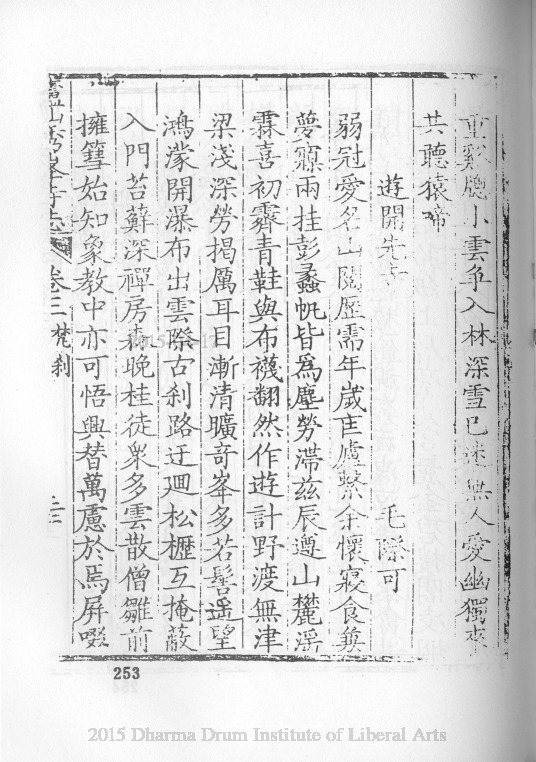 重谿聽小雲争入林深雪已迷無人愛幽獨來
共聽猿啼
遊開先寺
毛際可
弱冠愛名山閱歷需年歲匡廬繫余懷寢食羹
夢寐兩挂彭蠡帆皆為塵勞滯兹辰遵山麓滛
霖喜初霽青鞋與布襪翻然作遊計野渡無津
梁淺深勞揭厲耳目漸清曠奇峯多若髻遥望
鴻濛開瀑布出雲際古刹路迂廻松櫪互掩蔽
入門苔蘚深禪房森晚桂徒衆多雲散僧雛前
擁篲始知象教中亦可悟興替萬慮於焉屏啜
卷三 梵刹
253
2015 Dharma Drum Institute of Liberal Arts